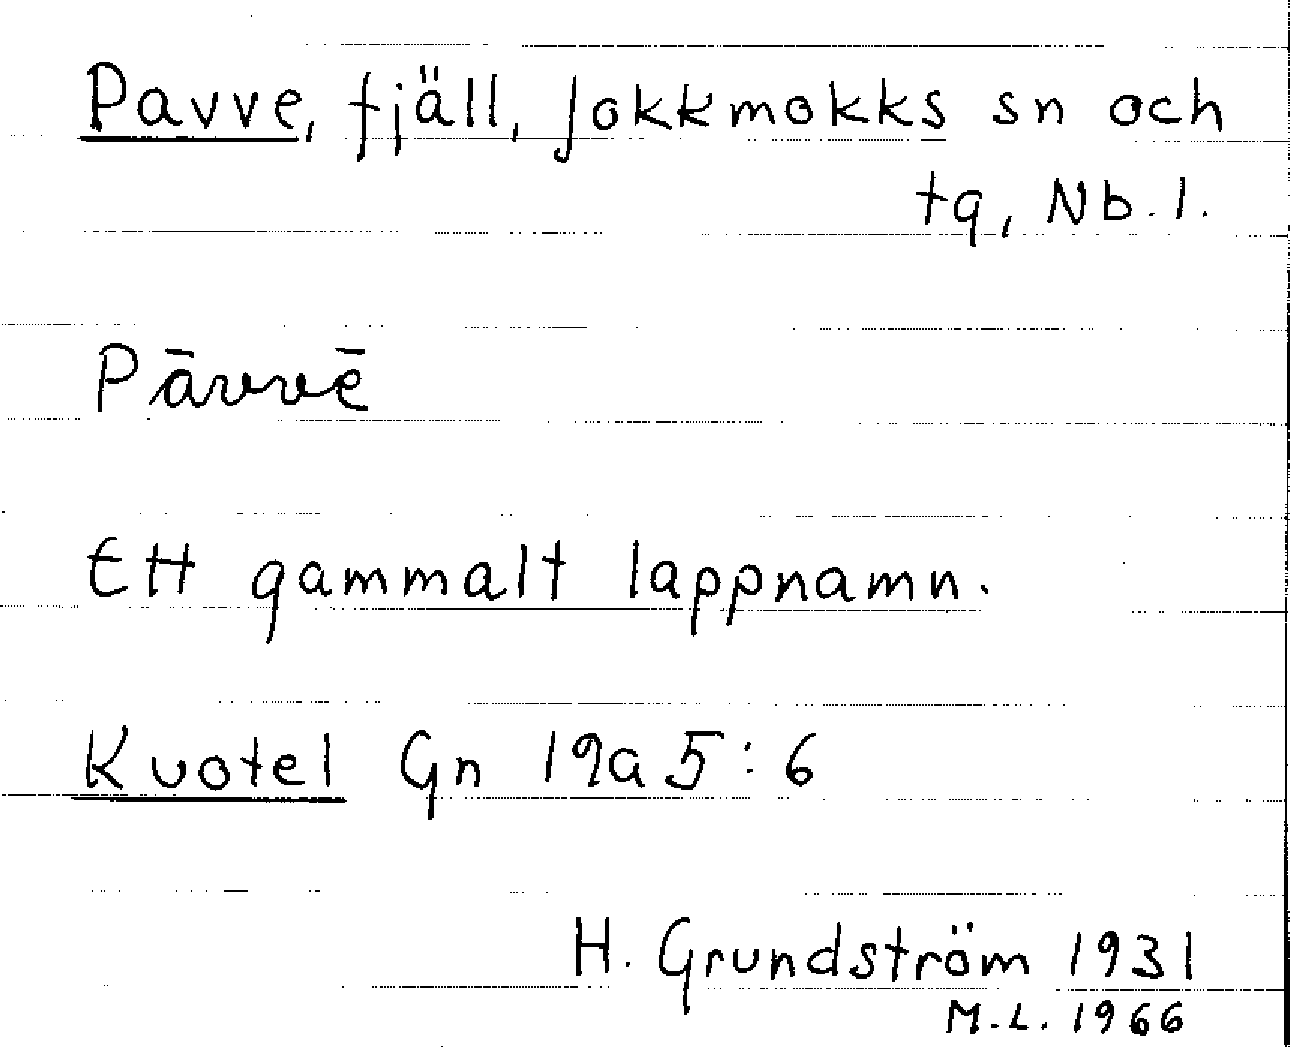 Pavve, fjäll, Jokkmokks sn och
tg, Nb. l.
Pāvvē
Ett gammalt lappnamn.
Kuotel Gn 19a 5:6
H. Grundström 1931
M.L. 1966